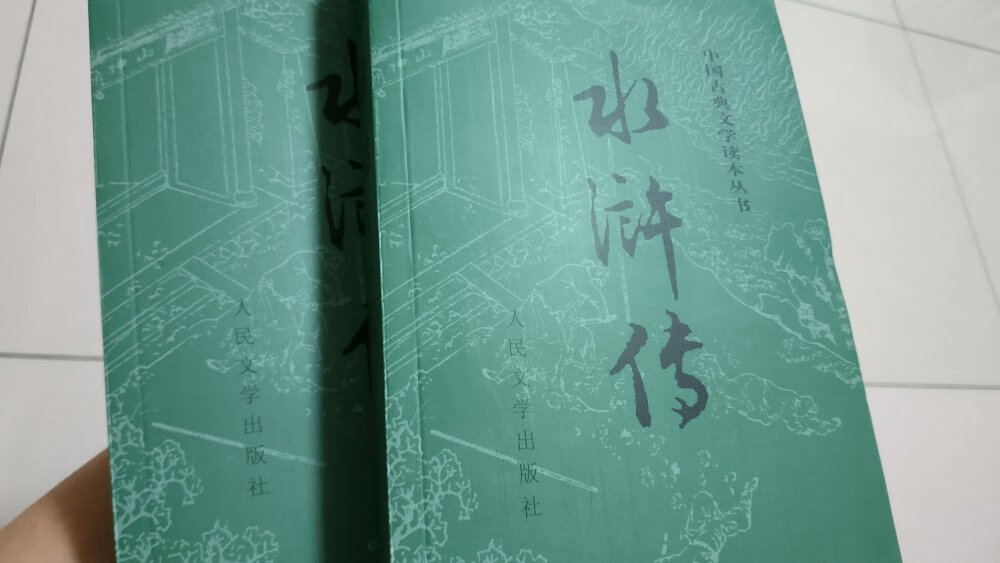 中国古典文学读本丛书
水浒传
人民文学出版社
水浒传
人民文学出版社